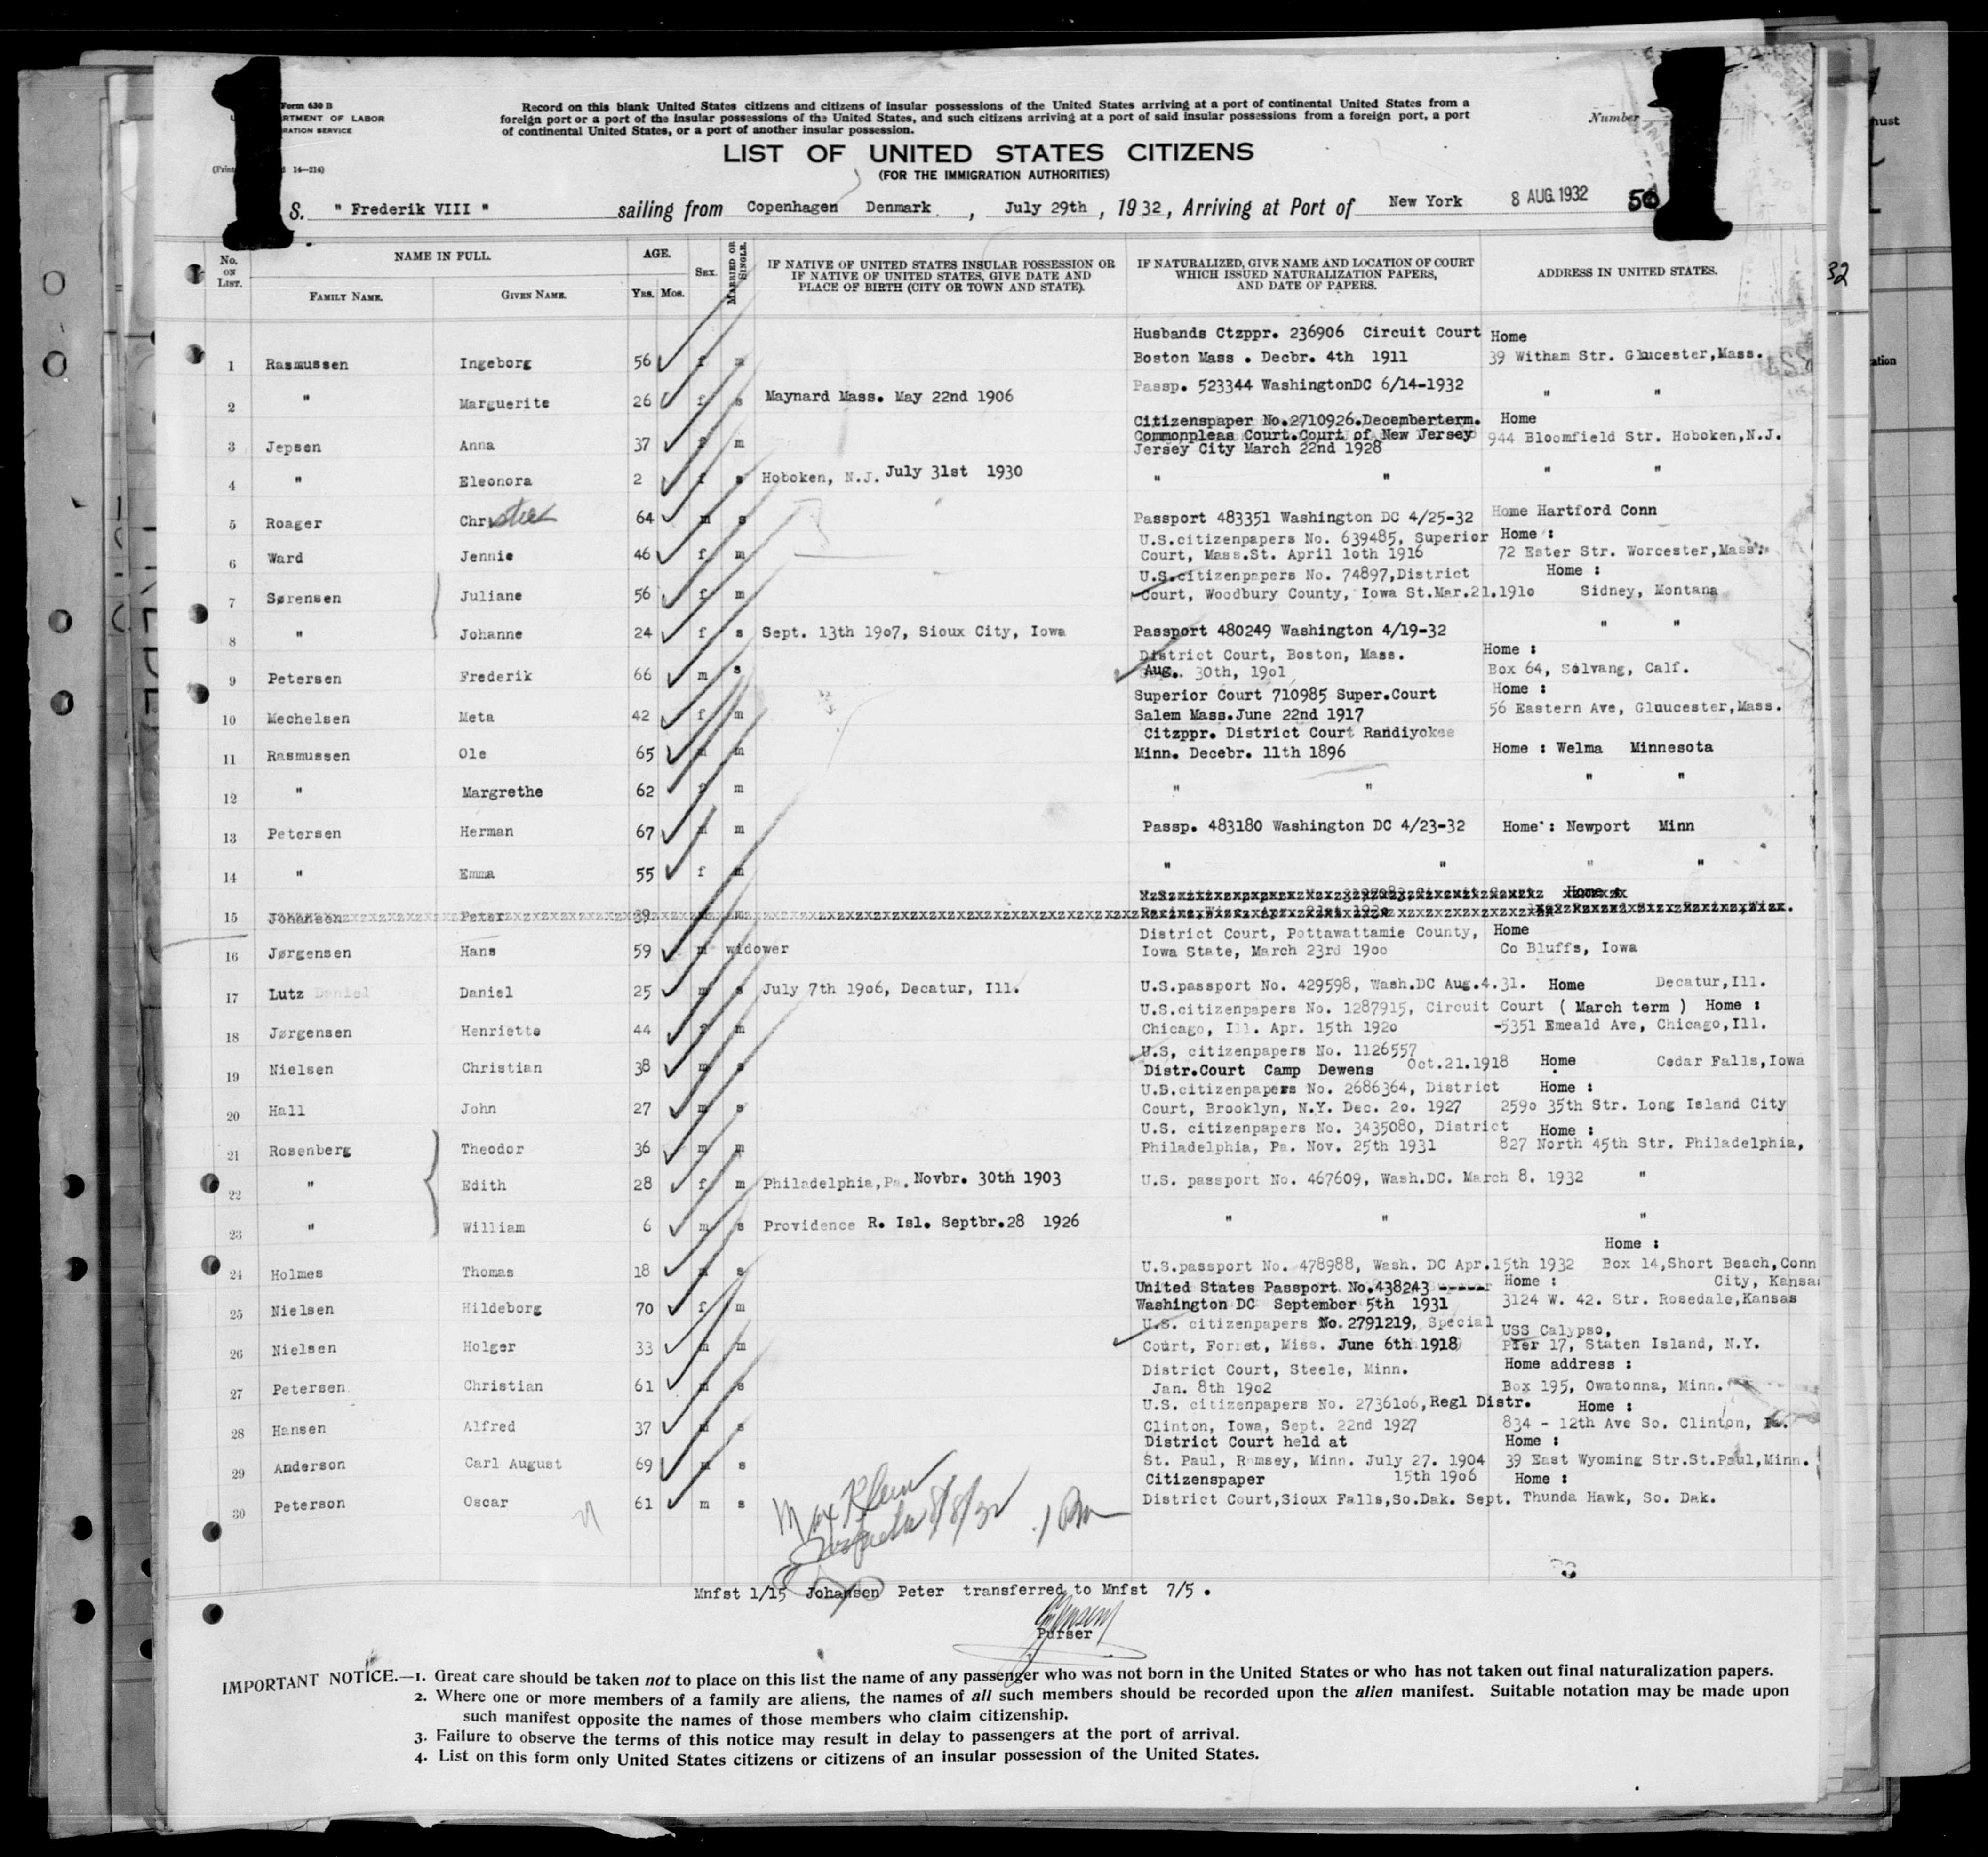 Form 630 B
RTMENT OF LABOR
RATION SERVICE
14—214)
Record on this blank United States citizens and citizens of insular possessions of the United States arriving at a port of continental United States from a
foreign port or a port of the insular possessions of the United States, and such citizens arriving at a port of said insular possessions from a foreign port, a port
of continental United States, or a port of another insular possession.
Number
LIST OF UNITED STATES CITIZENS
(FOR THE IMMIGRATION AUTHORITIES)
S. " Frederik VIII " sailing from Copenhagen Denmark , July 29th , 1932, Arriving at Port of New York 8 AUG. 1932 50
No. ON LIST. NAME IN FULL. AGE. SEX. MARRIED OR SINGLE. IF NATIVE OF UNITED STATES INSULAR POSSESSION OR IF NATIVE OF UNITED STATES, GIVE DATE AND PLACE OF BIRTH (CITY OR TOWN AND STATE). IF NATURALIZED, GIVE NAME AND LOCATION OF COURT WHICH ISSUED NATURALIZATION PAPERS, AND DATE OF PAPERS. ADDRESS IN UNITED STATES.
FAMILY NAME. GIVEN NAME. YRS. MOS.
Husbands Ctzppr. 236906 Circuit Court Home
1 Rasmussen Ingeborg 56 f m Boston Mass . Decbr. 4th 1911 39 Witham Str. Glucester,Mass.
Passp. 523344 WashingtonDC 6/14-1932
2 " Marguerite 26 f s Maynard Mass. May 22nd 1906 " "
Citizenspaper No.2710926.Decemberterm. Home
Commonpleas Court.Court of New Jersey
3 Jepsen Anna 37 f m Jersey City March 22nd 1928 944 Bloomfield Str. Hoboken,N.J.
4 " Eleonora 2 f s Hoboken, N.J. July 31st 1930 " " " "
5 Roager Christen 64 m s Passport 483351 Washington DC 4/25-32 Home Hartford Conn
U.S.citizenpapers No. 639485, Superior Home :
6 Ward Jennie 46 f m Court, Mass.St. April 10th 1916 72 Ester Str. Worcester,Mass.
U.S.citizenpapers No. 74897,District Home :
7 Sørensen Juliane 56 f m Court, Woodbury County, Iowa St.Mar.21.191o Sidney, Montana
8 " Johanne 24 f s Sept. 13th 19o7, Sioux City, Iowa Passport 480249 Washington 4/19-32 " "
District Court, Boston, Mass. Home :
9 Petersen Frederik 66 m s Aug. 30th, 19o1 Box 64, Solvang, Calf.
Superior Court 710985 Super.Court Home :
10 Mechelsen Meta 42 f m Salem Mass.June 22nd 1917 56 Eastern Ave, Gluucester,Mass.
Citzppr. District Court Randiyokee
11 Rasmussen Ole 65 m m Minn. Decebr. 11th 1896 Home : Welma Minnesota
12 " Margrethe 62 f m " " " "
13 Petersen Herman 67 m m Passp. 483180 Washington DC 4/23-32 Home : Newport Minn
14 " Emma 55 f m " " " "
15 Johansen Peter 39 m m
District Court, Pottawattamie County, Home
16 Jørgensen Hans 59 m widower Iowa State, March 23rd 19oo Co Bluffs, Iowa
17 Lutz Daniel 25 m s July 7th 19o6, Decatur, Ill. U.S.passport No. 429598, Wash.DC Aug.4.31. Home Decatur,Ill.
U.S.citizenpapers No. 1287915, Circuit Court ( March term ) Home :
18 Jørgensen Henriette 44 f m Chicago, Ill. Apr. 15th 192o -5351 Emeald Ave, Chicago,Ill.
U.S, citizenpapers No. 1126557
19 Nielsen Christian 38 m s Distr.Court Camp Dewens Oct.21.1918 Home Cedar Falls,Iowa
U.S.citizenpapers No. 2686364, District Home :
20 Hall John 27 m s Court, Brooklyn, N.Y. Dec. 2o. 1927 259o 35th Str. Long Island City
U.S. citizenpapers No. 3435080, District Home :
21 Rosenberg Theodor 36 m m Philadelphia, Pa. Nov. 25th 1931 827 North 45th Str. Philadelphia,
22 " Edith 28 f m Philadelphia,Pa. Novbr. 30th 1903 U.S. passport No. 467609, Wash.DC. March 8. 1932 "
23 " William 6 m s Providence R. Isl. Septbr.28 1926 " " "
Home :
24 Holmes Thomas 18 m s U.S.passport No. 478988, Wash. DC Apr.15th 1932 Box 14,Short Beach,Conn
United States Passport No.438243 ----- Home : City, Kansas
25 Nielsen Hildeborg 70 f m Washington DC September 5th 1931 3124 W. 42. Str. Rosedale,Kansas
U.S. citizenpapers No. 2791219, Special USS Calypso,
26 Nielsen Holger 33 m m Court, Forret, Miss. June 6th 1918 Pier 17, Staten Island, N.Y.
District Court, Steele, Minn. Home address :
27 Petersen Christian 61 m s Jan. 8th 19o2 Box 195, Owatonna, Minn.
U.S. citizenpapers No. 27361o6, Regl Distr. Home :
28 Hansen Alfred 37 m s Clinton, Iowa, Sept. 22nd 1927 834 - 12th Ave So. Clinton, Ia.
District Court held at Home :
29 Anderson Carl August 69 m s St. Paul, Ramsey, Minn. July 27. 1904 39 East Wyoming Str.St.Paul,Minn.
Citizenspaper 15th 19o6 Home :
30 Peterson Oscar 61 m s District Court,Sioux Falls,So.Dak. Sept. Thunda Hawk, So. Dak.
Max Klein
8/8/32
Mnfst 1/15 Johansen Peter transferred to Mnfst 7/5 .
Purser
IMPORTANT NOTICE.—1. Great care should be taken not to place on this list the name of any passenger who was not born in the United States or who has not taken out final naturalization papers.
2. Where one or more members of a family are aliens, the names of all such members should be recorded upon the alien manifest. Suitable notation may be made upon
such manifest opposite the names of those members who claim citizenship.
3. Failure to observe the terms of this notice may result in delay to passengers at the port of arrival.
4. List on this form only United States citizens or citizens of an insular possession of the United States.